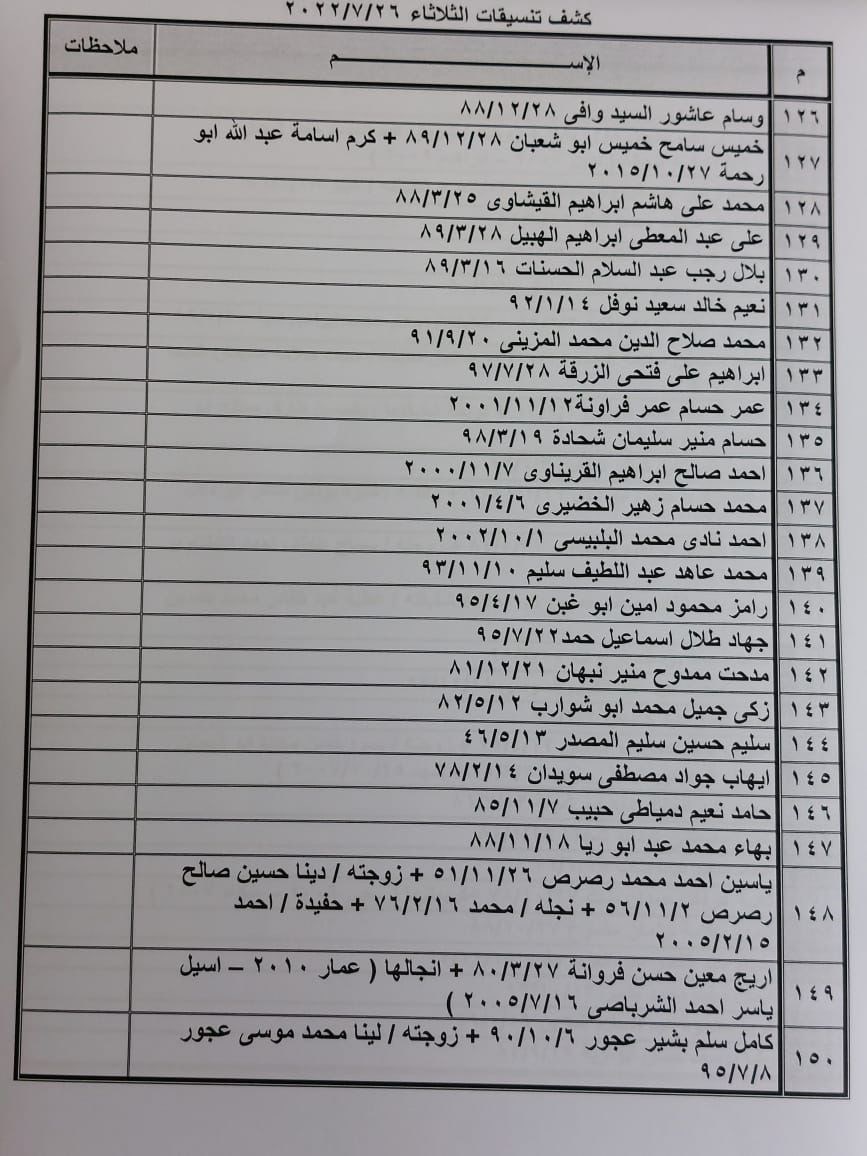 كشف تنسيقات الثلاثاء ٢٠٢٢/٧/٢٦
م الإســـــــــــــــــــــم ملاحظات
١٢٦ وسام عاشور السيد وافى ٨٨/١٢/٢٨
١٢٧ خميس سامح خميس ابو شعبان ٨٩/١٢/٢٨ + كرم اسامة عبد الله ابو
رحمة ٢٠١٥/١٠/٢٧
١٢٨ محمد على هاشم ابراهيم القيشاوى ٨٨/٣/٢٥
١٢٩ على عبد المعطى ابراهيم الهبيل ٨٩/٣/٢٨
١٣٠ بلال رجب عبد السلام الحسنات ٨٩/٣/١٦
١٣١ نعيم خالد سعيد نوفل ٩٢/١/١٤
١٣٢ محمد صلاح الدين محمد المزينى ٩١/٩/٢٠
١٣٣ ابراهيم على فتحى الزرقة ٩٧/٧/٢٨
١٣٤ عمر حسام عمر فراونة٢٠٠١/١١/١٢
١٣٥ حسام منير سليمان شحادة ٩٨/٣/١٩
١٣٦ احمد صالح ابراهيم القريناوى ٢٠٠٠/١١/٧
١٣٧ محمد حسام زهير الخضيرى ٢٠٠١/٤/٦
١٣٨ احمد نادى محمد البلبيسى ٢٠٠٢/١٠/١
١٣٩ محمد عاهد عبد اللطيف سليم ٩٣/١١/١٠
١٤٠ رامز محمود امين ابو غبن ٩٥/٤/١٧
١٤١ جهاد طلال اسماعيل حمد٩٥/٧/٢٢
١٤٢ مدحت ممدوح منير نبهان ٨١/١٢/٢١
١٤٣ زكى جميل محمد ابو شوارب ٨٢/٥/١٢
١٤٤ سليم حسين سليم المصدر ٤٦/٥/١٣
١٤٥ ايهاب جواد مصطفى سويدان ٧٨/٢/١٤
١٤٦ حامد نعيم دمياطى حبيب ٨٥/١١/٧
١٤٧ بهاء محمد عبد ابو ريا ٨٨/١١/١٨
١٤٨ ياسين احمد محمد رصرص ٥١/١١/٢٦ + زوجته / دينا حسين صالح
رصرص ٥٦/١١/٢ + نجله / محمد ٧٦/٢/١٦ + حفيدة / احمد
٢٠٠٥/٢/١٥
١٤٩ اريج معين حسن فروانة ٨٠/٣/٢٧ + انجالها ( عمار ٢٠١٠ – اسيل
ياسر احمد الشرباصى ٢٠٠٥/٧/١٦ )
١٥٠ كامل سلم بشير عجور ٩٠/١٠/٦ + زوجته / لينا محمد موسى عجور
٩٥/٧/٨